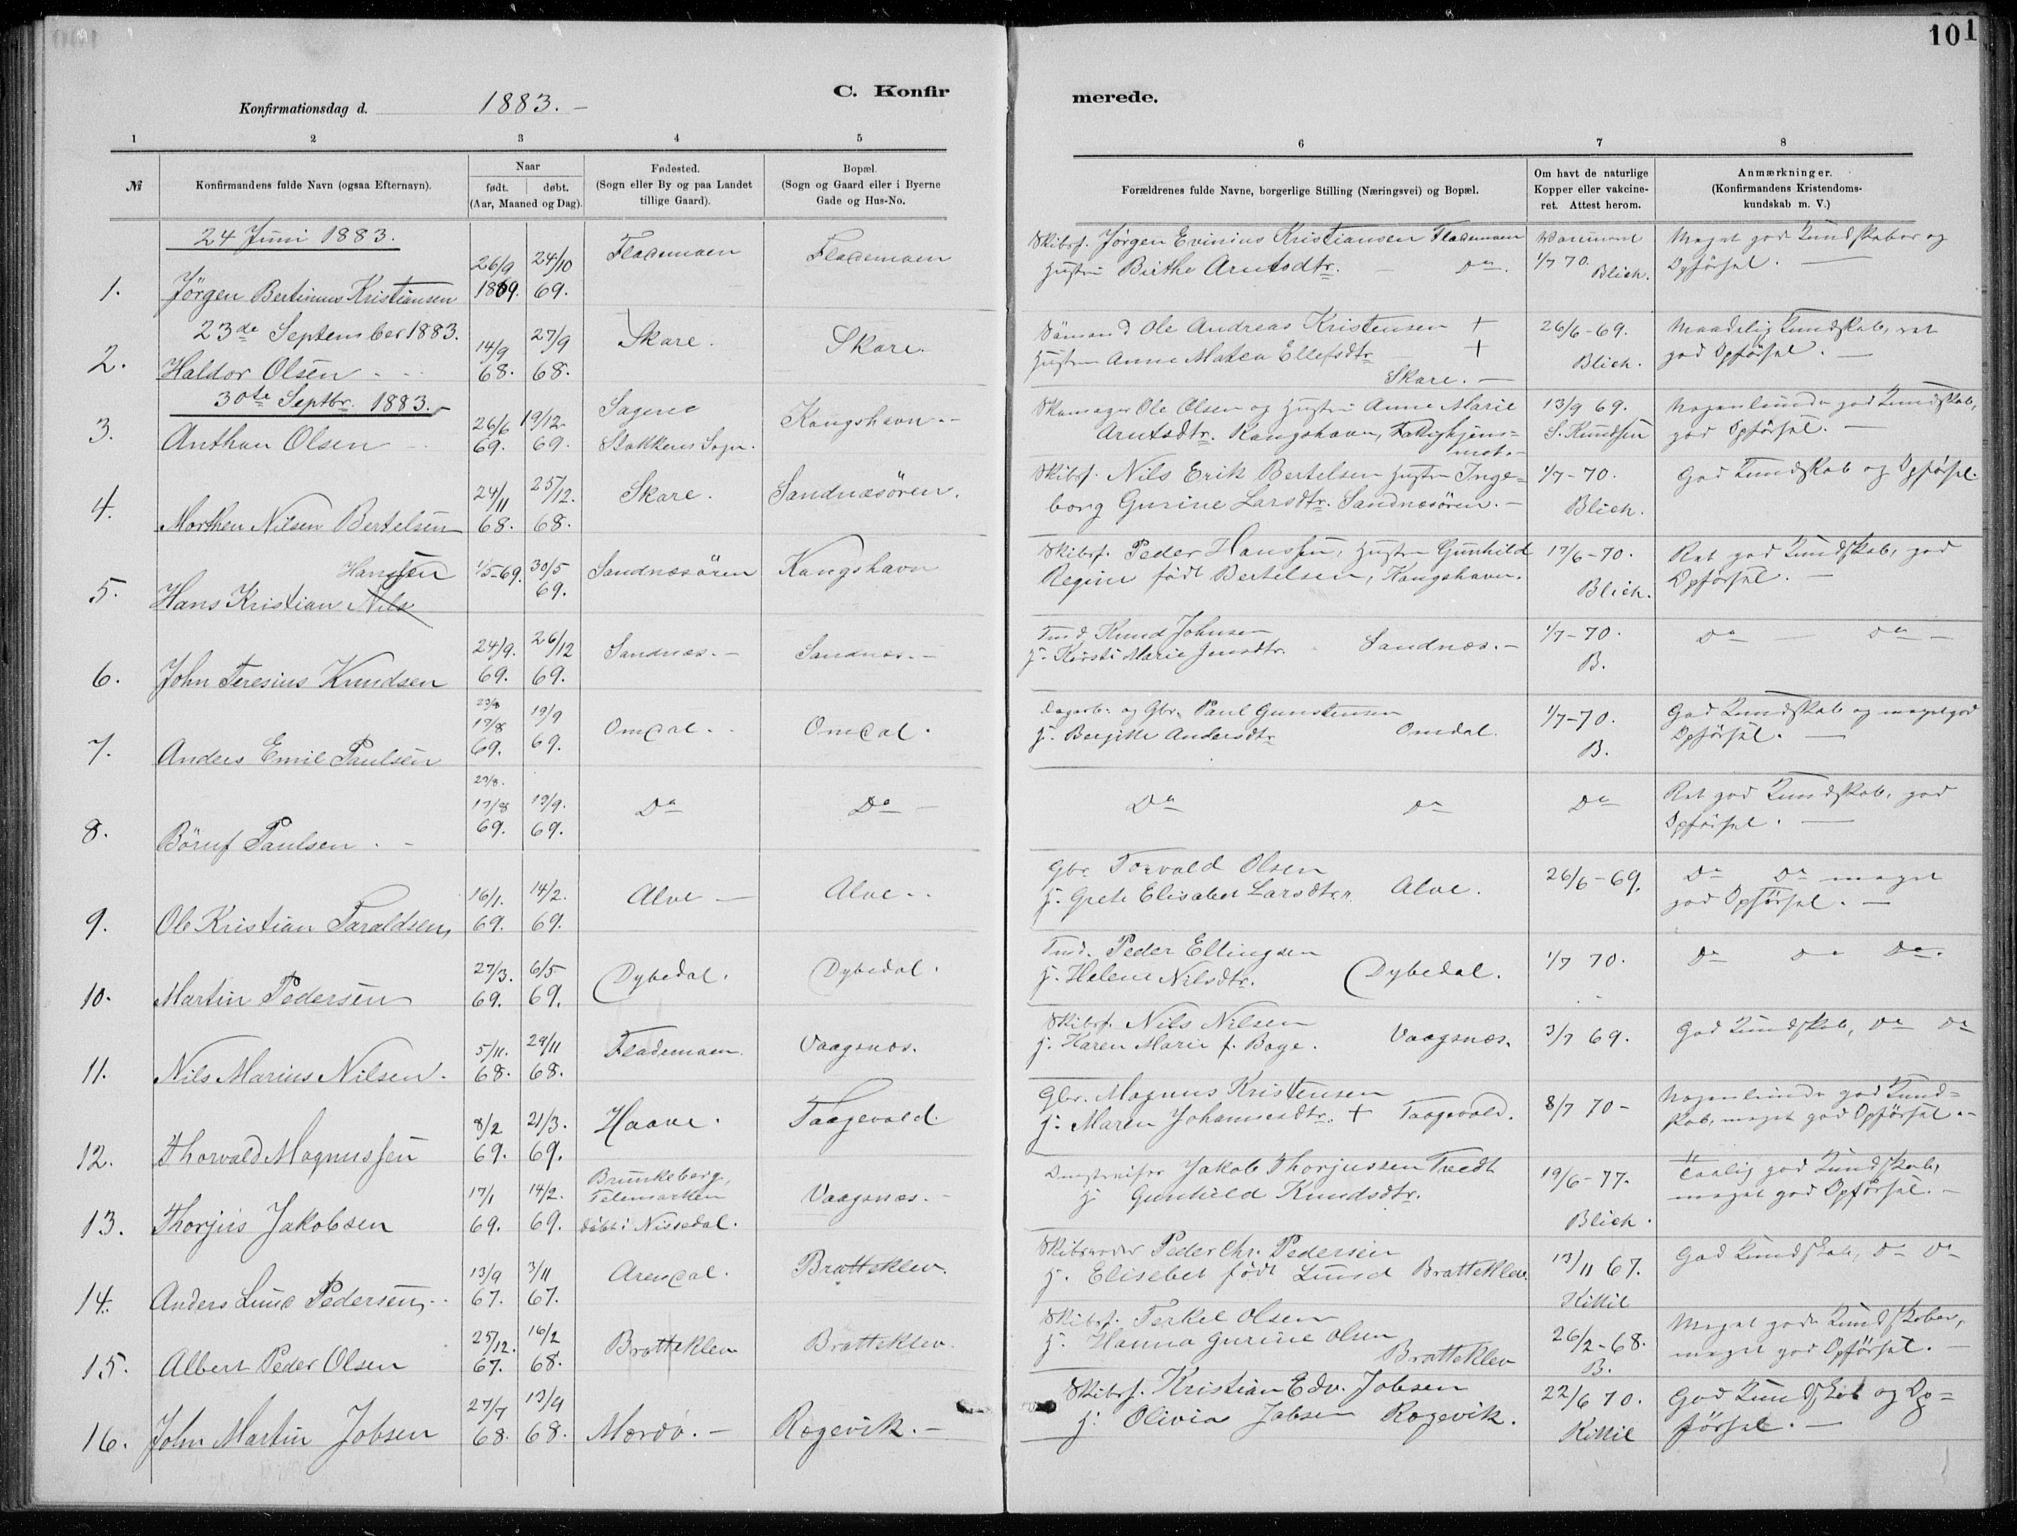 101
Konfirmationsdag d. 1883. –
C. Konfirmerede.
1 2 3 4 5 6 7 8
№
Konfirmandens fulde Navn (ogsaa Efternavn).
Naar
født. døbt.
(Aar, Maaned og Dag).
Fødested.
(Sogn eller By og paa Landet
tillige Gaard).
Bopæl.
(Sogn og Gaard eller i Byerne
Gade og Hus-No.
Forældrenes fulde Navne, borgerlige Stilling (Næringsvei) og Bopæl.
Om havt de naturlige
Kopper eller vakcine-
ret. Attest herom.
Anmærkninger.
(Konfirmandens Kristendoms-
kundskab m. V.)
24 Juni 1883.
1. Jörgen Bertinius Kristiansen 26/9 1869. 24/10 69. Flademoen Flademoen
Skibsf. Jörgen Evinius Kristiansen Flademoen
Hustru Birthe Arntsdtr. – Do.
1/7 70 Blich.
Meget god Kundskaber og
Opförsel. –
23de September 1883.
2. Haldor Olsen 14/9 68. 27/9 68. Skare. Skare.
Sömand Ole Andreas Kristensen +
Hustru Anne Matea Ellefsdtr +
Skare. –
26/6-69.
Blich.
Maadelig Kundskab, ret
god Opförsel. –
30te Septbr. 1883.
3. Anthon Olsen 26/6 69. 19/12 69. Sagene
Stokkens Sogn. Kongshavn. –
Skomager Ole Olsen og Hustru Anne Marie
Arntsdtr. Kongshavn,
13/9 69.
S. Knudsen
Nogenlunde god Kundskab,
god Opförsel. –
4. Morthen Nilsen Bertelsen 24/11 68. 25/12. 68. Skare. Sandnæsören.
Skibsf. Nils Erik Bertelsen Hustru Inge-
borg Gurine Larsdtr. Sandnæsören. –
1/7-70.
Blich.
God Kundskab og Opförsel.
5. Hans Kristian Nils Hanssen 1/5-69. 30/5 69. Sandnæsören Kongshavn
Skibsf. Peder Hanssen, Hustru Gunhild
Regine född Bertelsen, Kongshavn.
17/6-70.
Blich.
Ret god Kundskab, god
Opförsel. –
6. John Teresius Knudsen 24/9. 69. 26/12 69. Sandnæs. – Sandnæs. –
Tmd. Knud Johnsen
H. Kirsti Marie Jensdtr. Sandnæs. –
1/7-70.
B.
Do Do –
7. Anders Emil Paulsen 23/8 17/8 69. 19/9 69. Omdal. Omdal.
Dagarb. og Gbr. Paul Gunstensen
H. Bergitte Andersdtr Omdal.
1/7-70.
B.
God Kundskab og meget god
Opförsel. –
8. Böruf Paulsen 23/8. 17/8 69. 19/9. 69. Do Do –
Do Do Do
Ret god Kundskab, god
Opförsel. –
9. Ole Kristian Taraldsen, 16/1. 69. 14/2. 69. Alve – Alve.
Gbr. Torvald Olsen
H. Grete Elisabet Larsdtr. Alve.
26/6-69.
Do Do meget
god Opförsel. –
10. Martin Pedersen 27/3. 69. 6/5 69. Dybedal. Dybedal.
Tmd. Peder Ellingsen
H. Helene Nilsdtr. Dybedal.
1/7 70.
Do Do Do.
11. Nils Marius Nilsen. 5/11. 68. 29/11 68. Flademoen. Vaagsnæs.
Skibsf. Nils Nilsen
H. Karen Marie f. Boge. Vaagsnæs.
3/7 69.
God Kundskab, Do Do
12. Thorvald Magnussen 8/2 69. 21/3. 69. Haave. Taagevold
Gbr. Magnus Kristensen
H. Maren Johannesdtr. + Taagevold.
8/7 70 –
Nogenlunde god Kund-
skab, meget god Opförsel. –
13. Thorjus Jakobsen 17/1 69. 14/2. 69. Brunkeberg,
Telemarken
döbt i Nissedal. Vaagsnæs. –
Jakob Thorjussen Tredt
H Gunhild Knudsdtr.
19/6-77.
Blich.
Taalig god Kundskab,
meget god Opförsel. –
14. Anders Lund Pedersen 13/9 67. 3/11 67. Arendal. Bratteklev.
Skibsreder Peder Chr. Pedersen
H. Elisebet född Lund Bratteklev.
13/11 67.
Kittil
God Kundskab, Do Do
15. Albert Peder Olsen 25/12. 67. 16/2 68. Bratteklev Bratteklev.
Skibsf. Terkel Olsen
H. Hanna Gurine Olsen
Bratteklev
26/2-68.
B.
Meget gode Kundskaber,
meget god Opförsel. –
16. John Martin Jobsen 27/7 68. 13/9 68. Merdö. – Rægevik. –
Skibsf. Kristian Edv. Jobsen
H. Olivia Jobsen Rægevik.
22/6 70.
Kittil
God Kundskab og Op-
försel. –